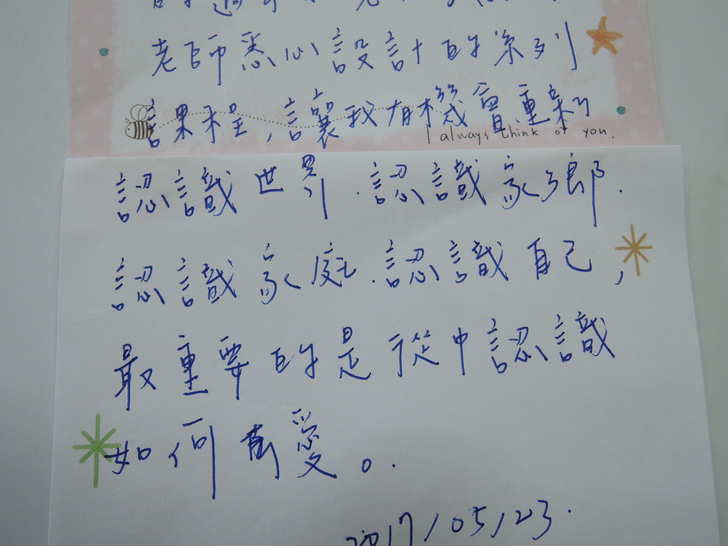 老師悉心設計的系列
課程，讓我有機會重新
I always think of you.
認識世界．認識家鄉．
認識家庭．認識自己，
最重要的是從中認識
如何去愛。．
2017/05/23．